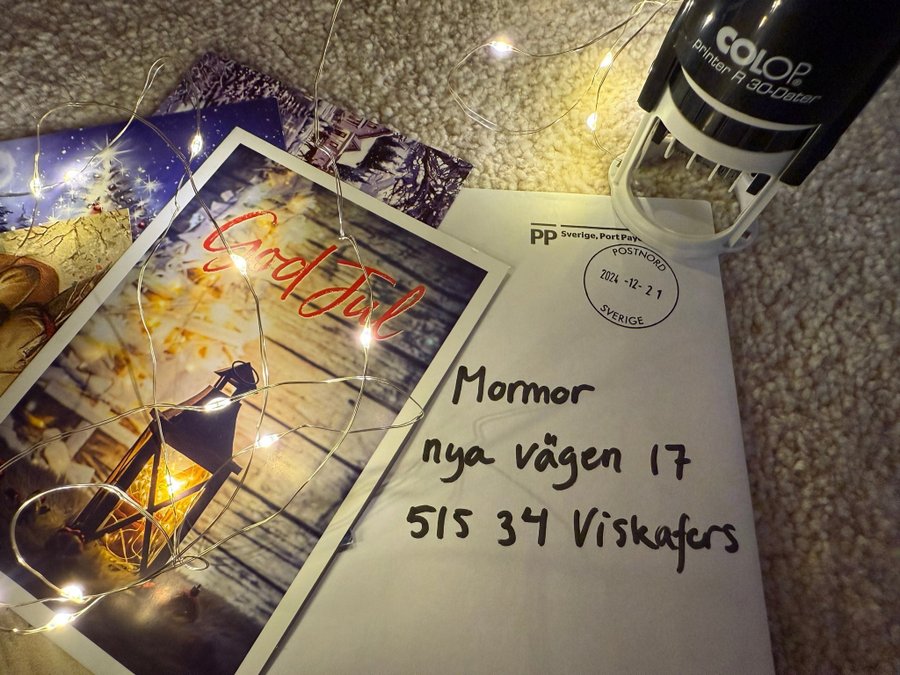 COLOP
printer R 30-Dater
God Jul
PP Sverige, Port Pay
POSTNORD
2024-12-21
SVERIGE
Mormor
nya vägen 17
515 34 Viskafors